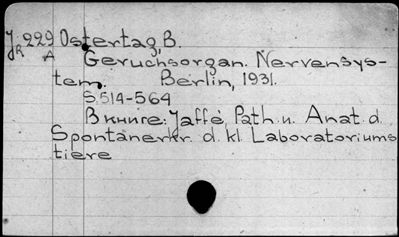 JR 229 Ostertag, B.
A Geruchsorgan. Nervensys-
tem. Berlin, 1931.
S.514-564
В книге: Jaffé, Path. u. Anat. d.
Spontanerkr. d. kl. Laboratoriums
tiere